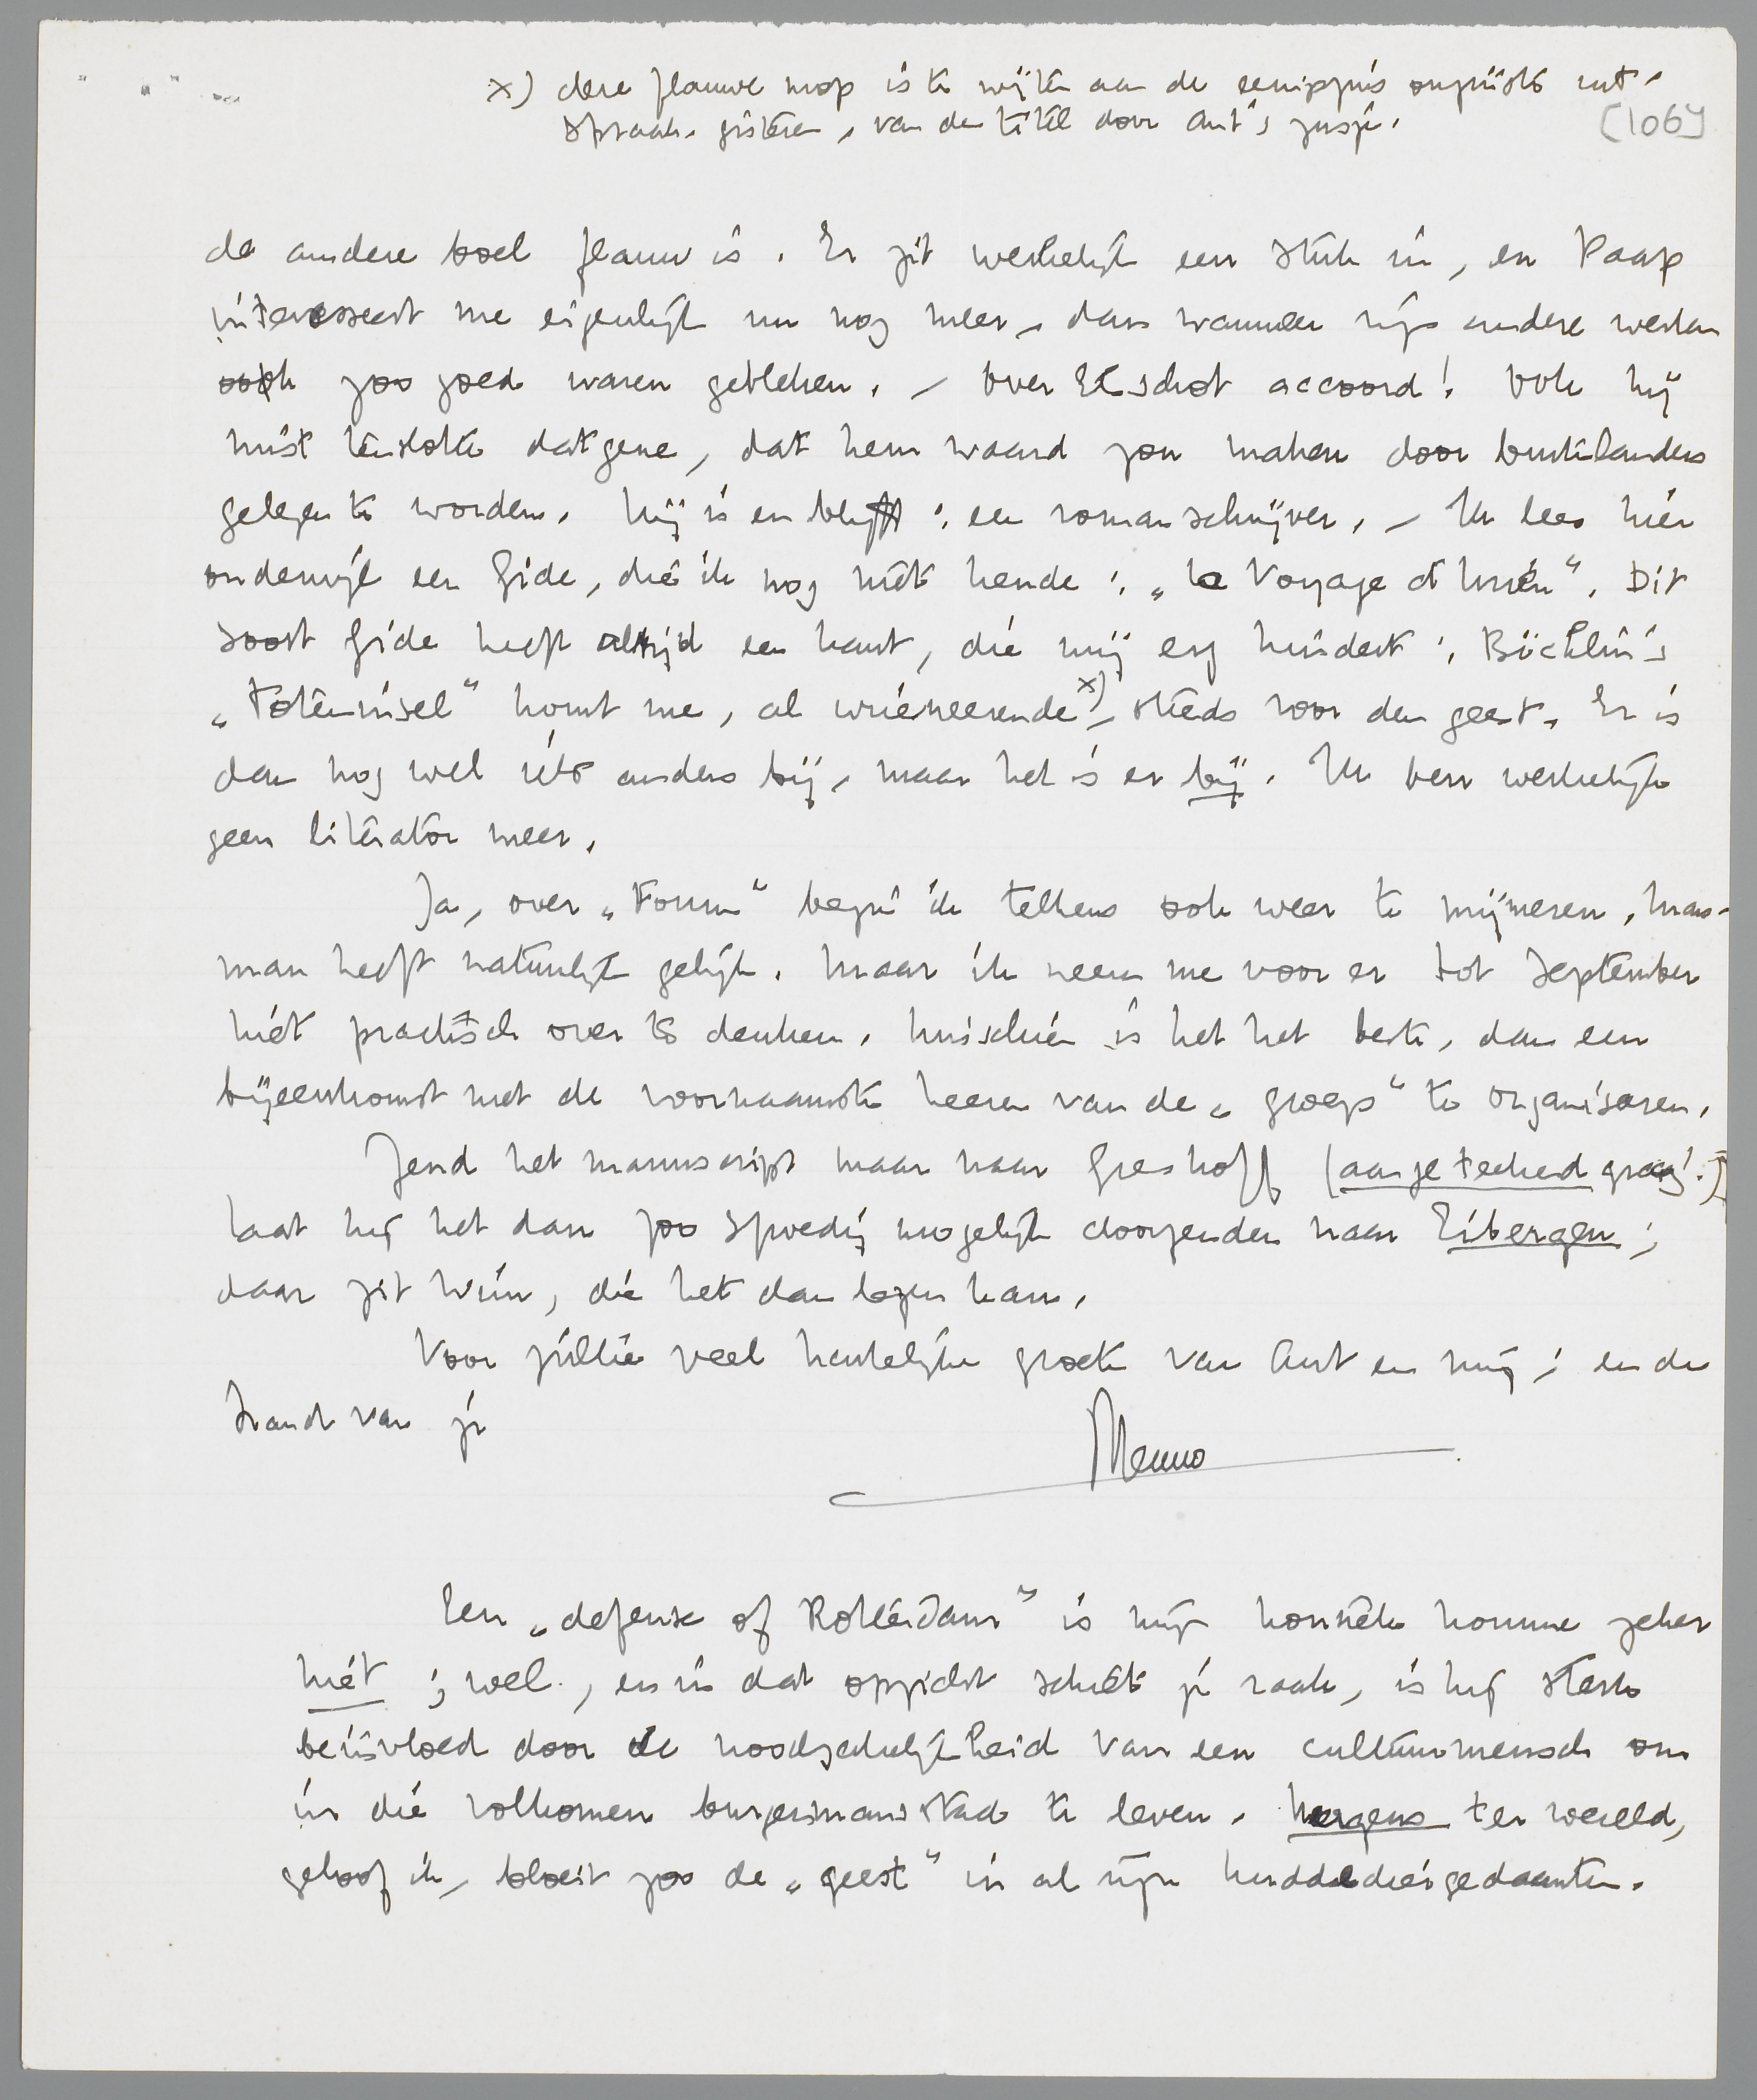 x) deze flauwe mop is te wijten aan de eenigszins onjuiste uit-
spraak, gisteren, van den titel door Ant's zusje.
[106]
de andere boel flauw is. Er zit werkelijk een stuk in, en Paap
interesseert me eigenlijk nu nog meer, dan wanneer zijn andere werken
ook zoo goed waren gebleken. - Over Elsschot accoord! Ook hij
mist tenslotte datgene, dat hem waard zou maken door buitenlanders
gelezen te worden. Hij is en blijft: een romanschrijver. - Ik lees hier
onderwijl een Gide, die ik nog niet kende: „Le Voyage d'Urien". Dit
soort Gide heeft altijd een kant, die mij erg hindert: Böcklin's
„Toteninsel" komt me, al urineerende x), steeds voor den geest. Er is
dan nog wel iets anders bij, maar het is er bij. Ik ben werkelijk
geen literator meer.
Ja, over „Forum" begin ik telkens ook weer te mijmeren. Mars-
man heeft natuurlijk gelijk. Maar ik neem me voor er tot September
niet practisch over te denken. Misschien is het het beste, dan een
bijeenkomst met de voornaamste heeren van de „groep" te organiseren.
Zend het manuscript maar naar Greshoff (aangeteekend graag!)
laat hij het dan zoo spoedig mogelijk doorzenden naar Eibergen;
daar zit Wim, die het dan lezen kan.
Voor jullie veel hartelijke groeten van Ant en mij; en de
hand van je
Menno
Een „defense of Rotterdam" is mijn honnête homme zeker
niet; wel, en in dat opzicht schiet je raak, is hij sterk
beïnvloed door de noodzakelijkheid van een cultuurmensch om
in die volkomen burgermansstad te leven. Nergens ter wereld,
geloof ik, bloeit zoo de „geest" in al zijn kuddediergedaanten.